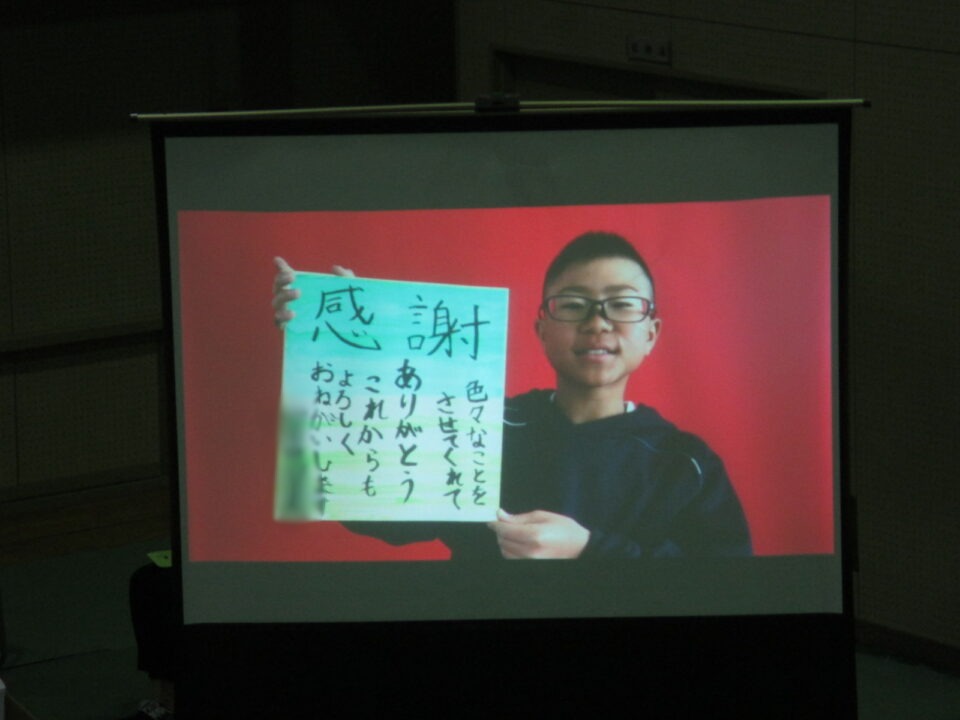 感謝
色々なことを
させてくれて
ありがとう
これからも
よろしく
おねがいします